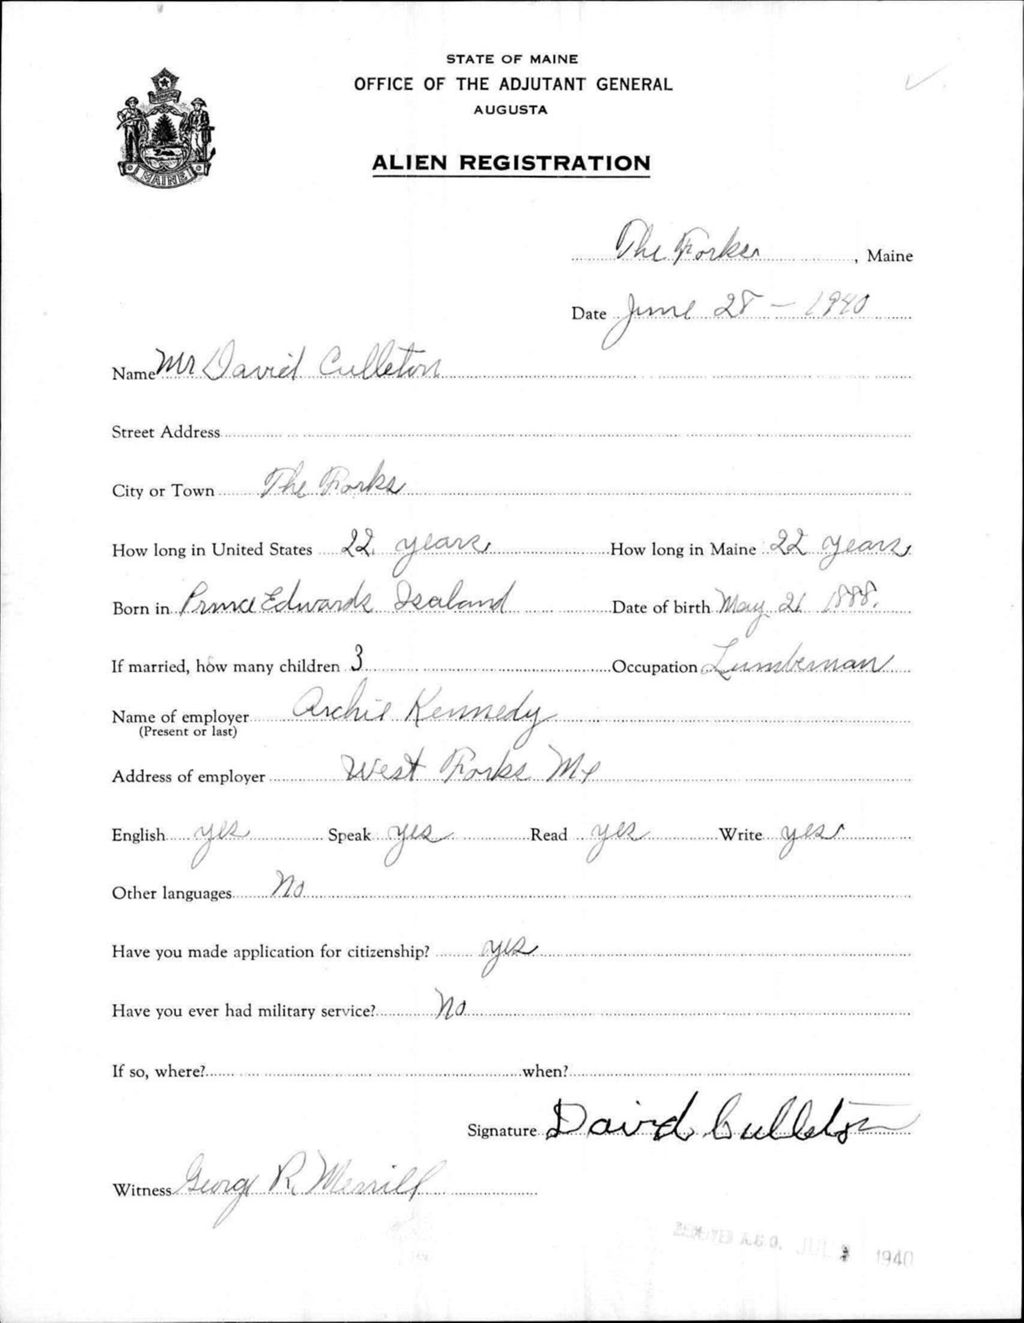 STATE OF MAINE
OFFICE OF THE ADJUTANT GENERAL
AUGUSTA
ALIEN REGISTRATION
MAINE
The Forks, Maine
Date June 28 - 1940
Name Mr David Culleton
Street Address
City or Town The Forks
How long in United States 22 years How long in Maine 22 years
Born in Prince Edwards Isaland Date of birth May 21 1888.
If married, how many children 3 Occupation Lumberman
Name of employer Archie Kennedy
(Present or last)
Address of employer West Forks Me
English yes Speak yes Read yes Write yes
Other languages No
Have you made application for citizenship? yes
Have you ever had military service? No
If so, where? when?
Signature David Culleton
Witness George R. Merrill
A.G.O. JUL 1940